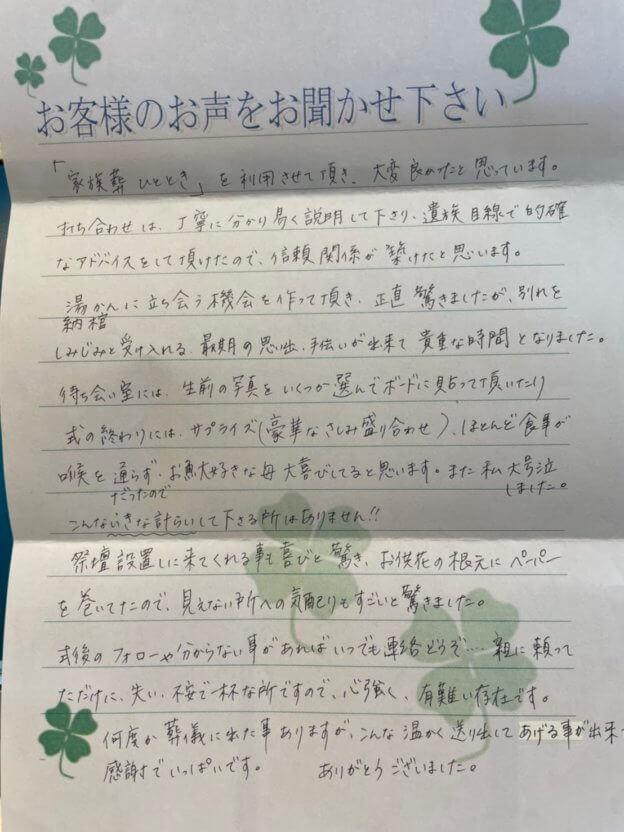 お客様のお声をお聞かせ下さい
「家族葬 ひととき」を利用させて頂き、大変良かったと思っています。
打ち合わせは、丁寧に分かり易く説明して下さり、遺族目線で的確
なアドバイスをして頂けたので、信頼関係が築けたと思います。
湯かんに立ち会う機会を作って頂き、正直驚きましたが、別れを
納棺
しみじみと受け入れる、最期の思い出、手伝いが出来て貴重な時間となりました。
待ち合い室には、生前の写真をいくつか選んでボードに貼って頂いたり
式の終わりには、サプライズ(豪華なさしみ盛り合わせ)、ほとんど食事が
喉を通らず、お魚大好きな母大喜びしてると思います。また私大号泣
だったので
しました。
こんないきな計らいして下さる所はありません!!
祭壇設置しに来てくれる事も喜びと驚き、お供花の根元にペーパー
を巻いてたので、見えない所への気配りもすごいと驚きました。
式後のフォローや分からない事があればいつでも連絡どうぞ… 親に頼って
ただけに、失い、不安で一杯な所ですので、心強く、有難い存在です。
何度か葬儀に出た事ありますが、こんな温かく送り出してあげる事が出来
感謝でいっぱいです。 ありがとうございました。